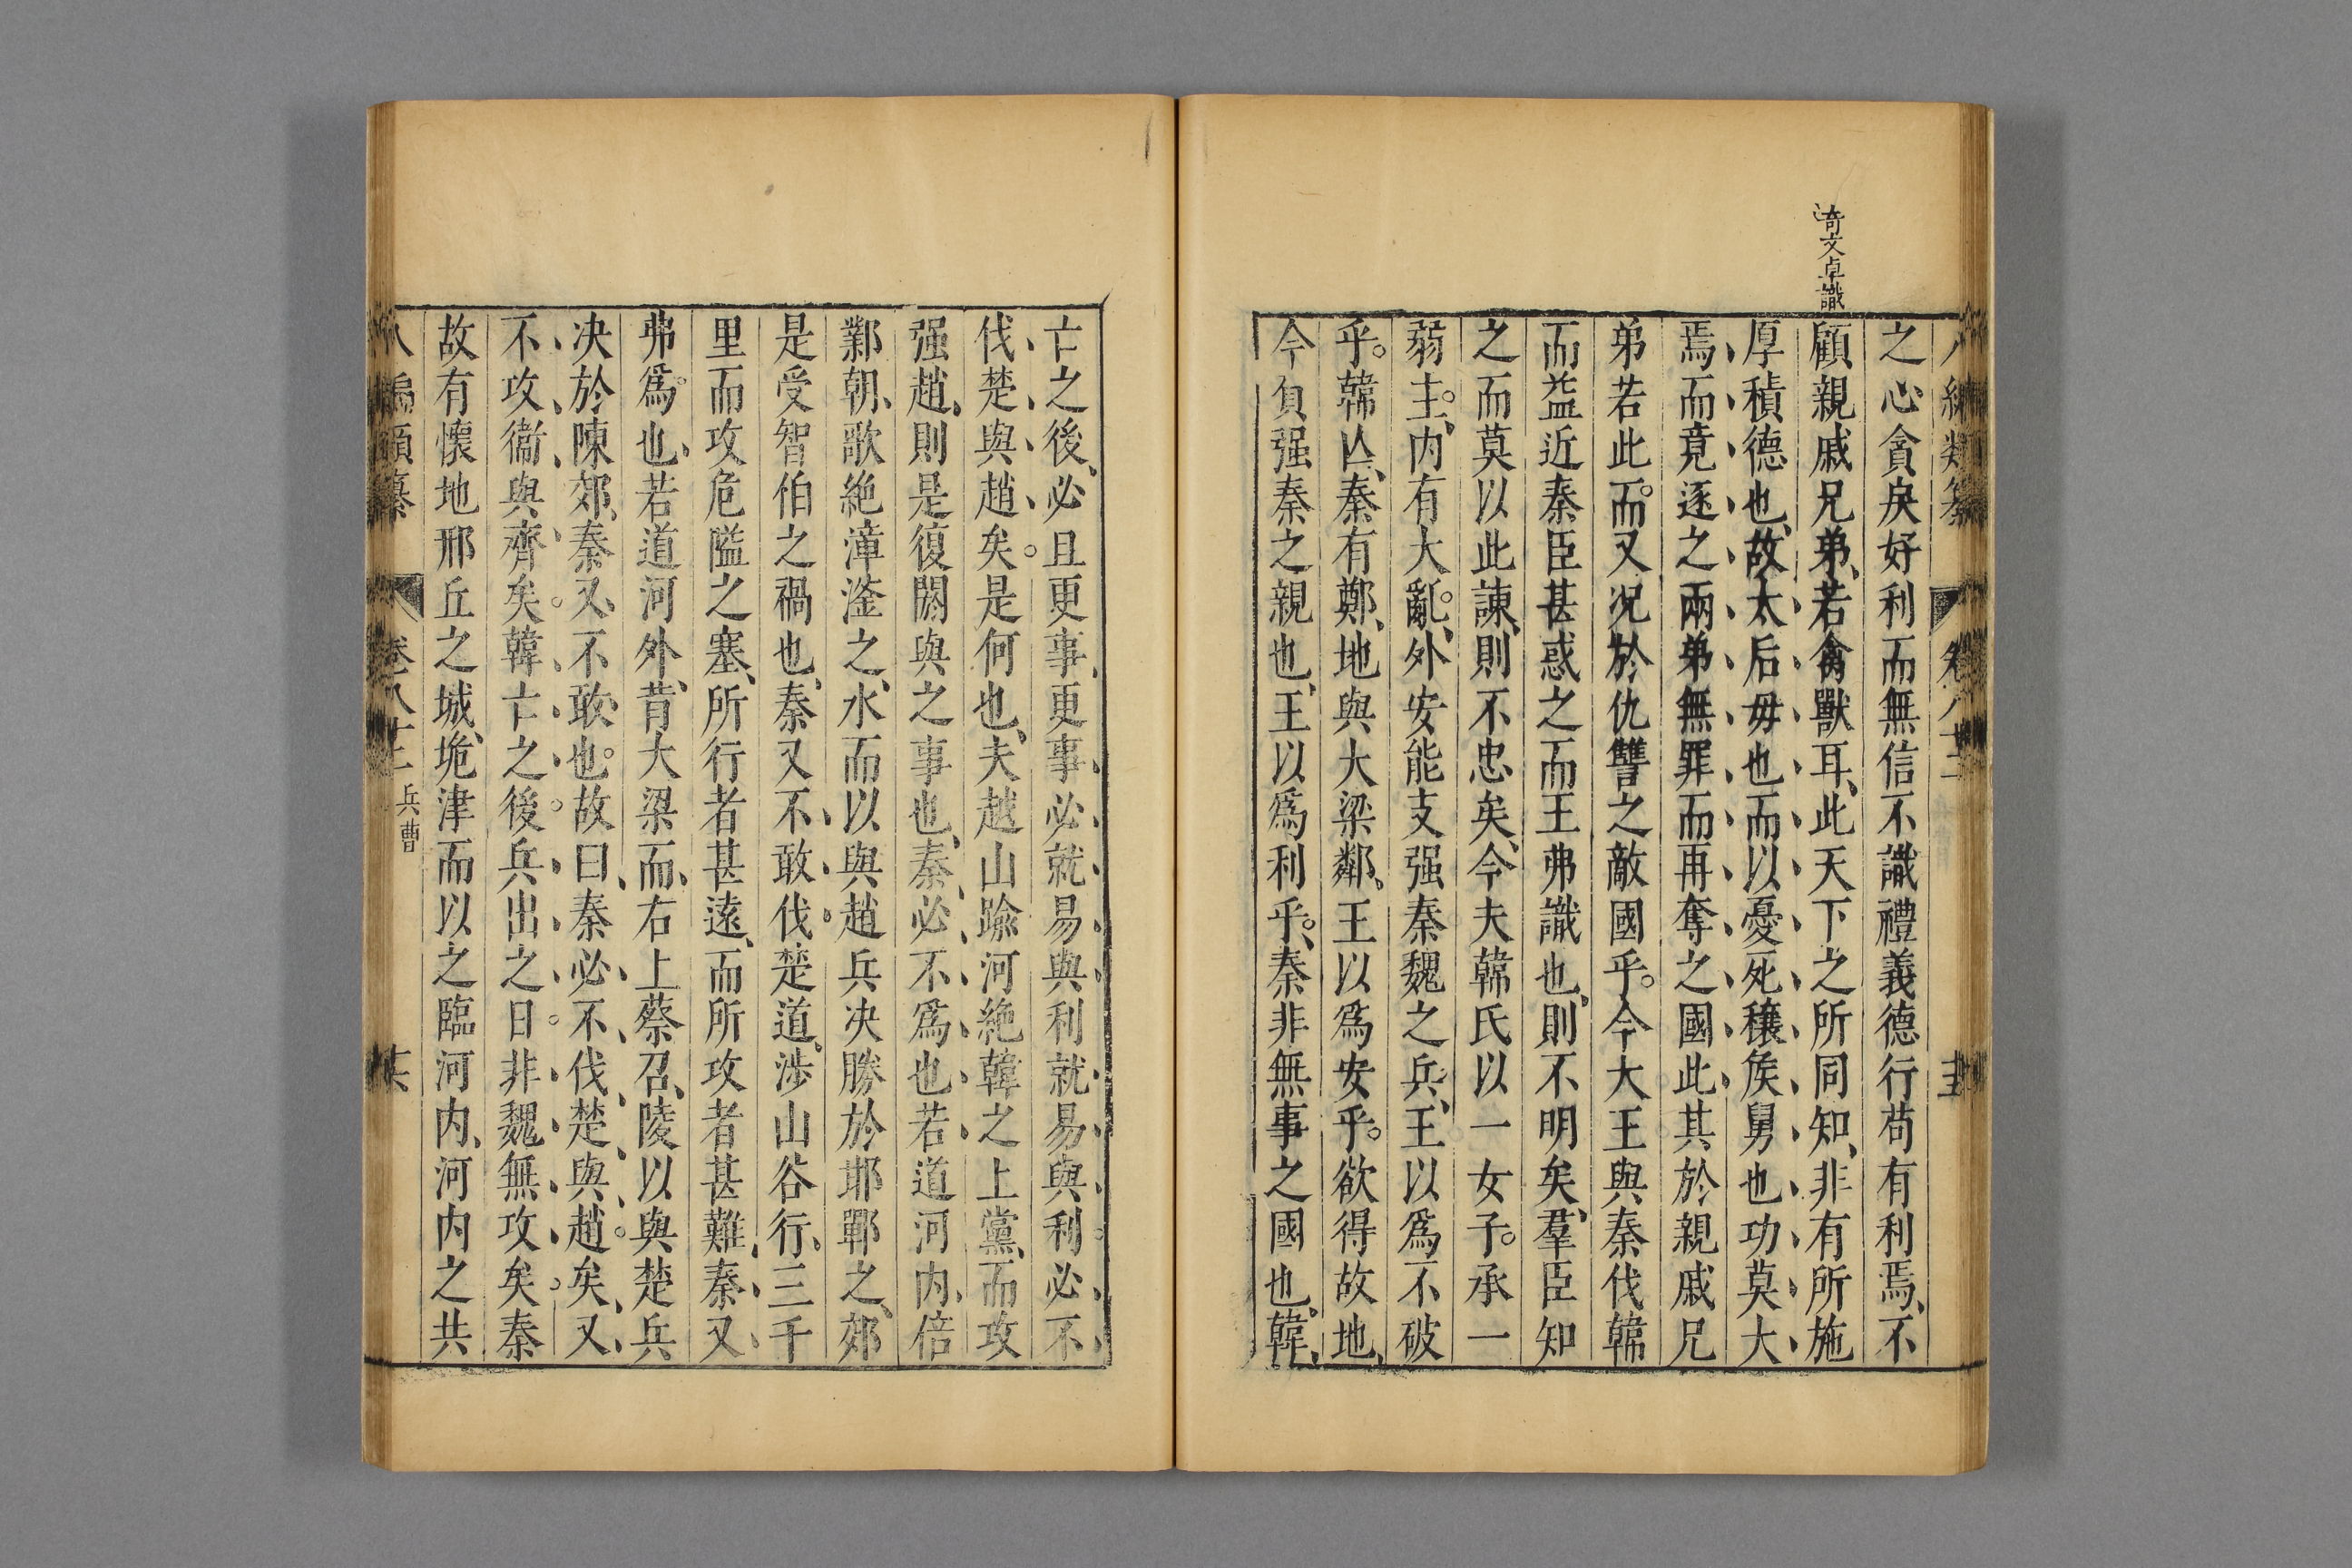 八編類纂 卷八十二 十五
奇文卓識
之心貪戾好利而無信不識禮義德行苟有利焉不
顧親戚兄弟若禽獸耳此天下之所同知非有所施
厚積德也故太后毋也而以憂死穰侯舅也功莫大
焉而竟逐之兩弟無罪而再奪之國此其於親戚兄
弟若此而又况於仇讐之敵國乎今大王與秦伐韓
而益近秦臣甚惑之而王弗識也則不明矣羣臣知
之而莫以此諫則不忠矣今夫韓氏以一女子承一
弱主内有大亂外安能支强秦魏之兵王以爲不破
乎韓亾秦有鄭地與大梁鄰王以爲安乎欲得故地
今負强秦之親也王以爲利乎秦非無事之國也韓
亡之後必且更事更事必就易與利就易與利必不
伐楚與趙矣是何也夫越山踰河絶韓之上黨而攻
强趙則是復閼與之事也秦必不爲也若道河内倍
鄴朝歌絶漳滏之水而以與趙兵决勝於邯鄲之郊
是受智伯之禍也秦又不敢伐楚道涉山谷行三千
里而攻危隘之塞所行者甚遠而所攻者甚難秦又
弗爲也若道河外背大梁而右上蔡召陵以與楚兵
决於陳郊秦又不敢也故曰秦必不伐楚與趙矣又
不攻衞與齊矣韓亡之後兵出之日非魏無攻矣秦
故有懷地邢丘之城垝津而以之臨河内河内之共
八編類纂 卷八十二 兵曹 十六